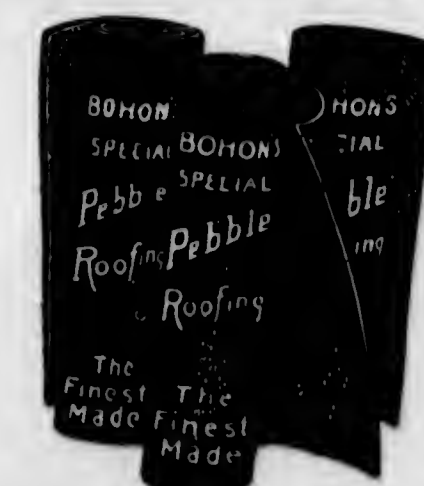 BOHON
SPECIAL
Pebb e
Roofing
The
Finest
Made
BOHON'S
SPECIAL
Pebble
Roofing
The
Finest
Made
HON'S
IAL
ble
ing